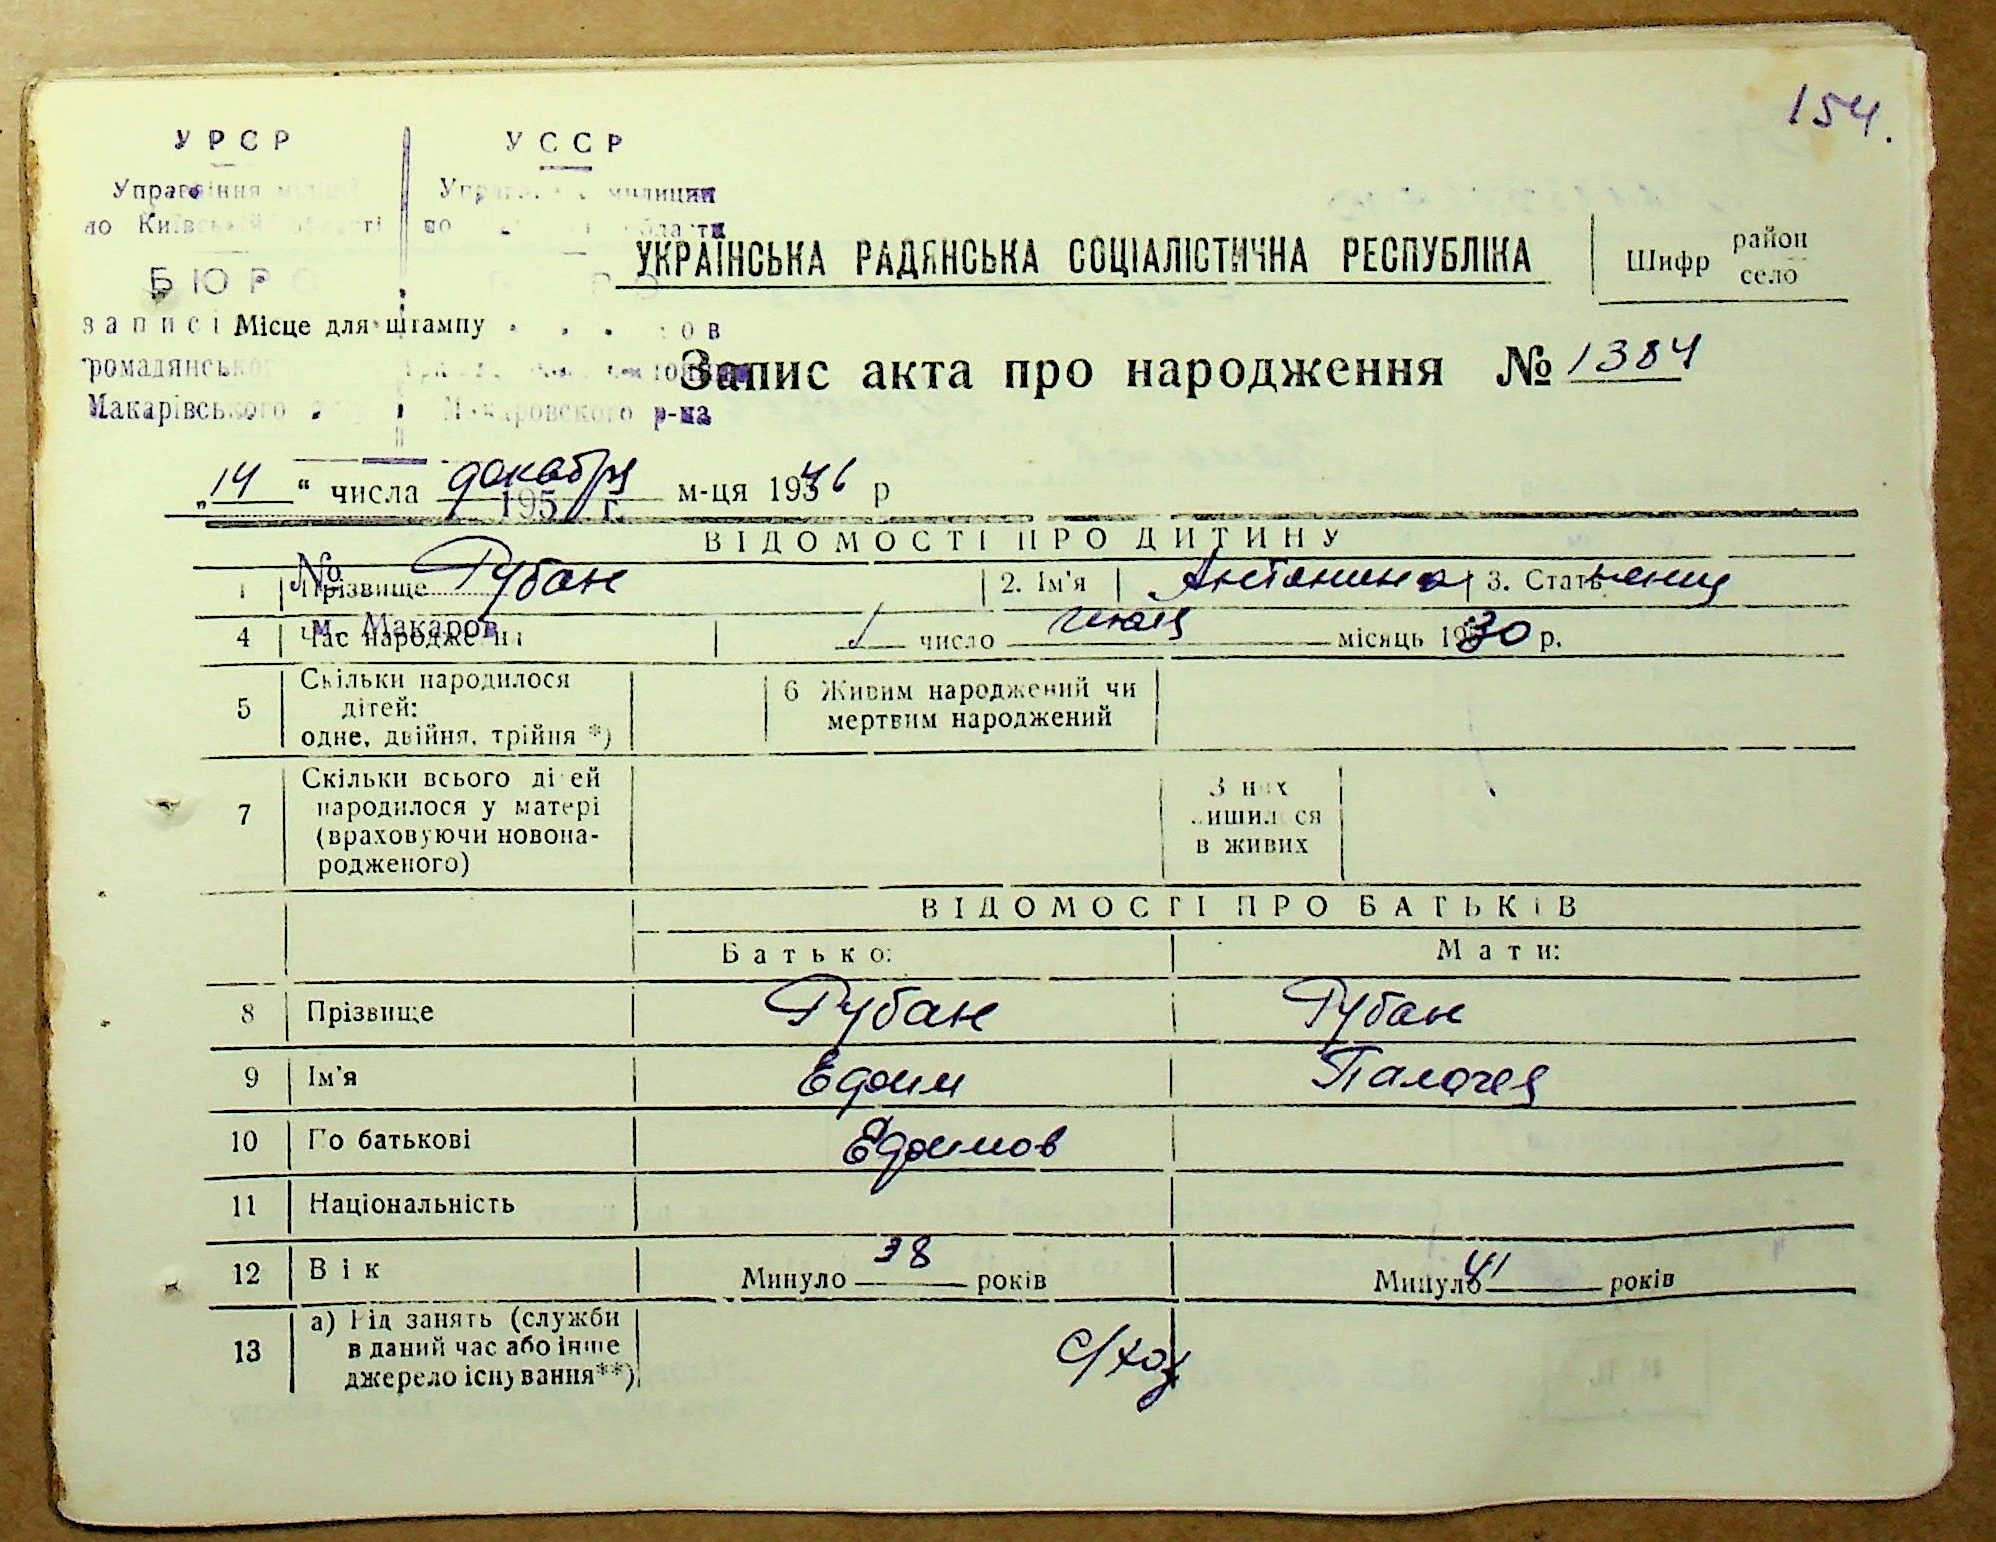 154.
УРСР УССР
Управління милиции
по Київській області по области
БЮРО
УКРАЇНСЬКА РАДЯНСЬКА СОЦІАЛІСТИЧНА РЕСПУБЛІКА
Шифр район село
записі Місце для штампу
громадянського
Запис акта про народження № 1384
Макарівського Макаровского р-на
„14“ числа декабря м-ця 1946 р
195 г.
ВІДОМОСТІ ПРО ДИТИНУ
№
1 Прізвище Рубан 2. Ім'я Антонина 3. Стать женщ
м. Макаров
4 Час народження 1 число июля місяць 1930 р.
5 Скільки народилося дітей: одне, двійня, трійня *) 6 Живим народжений чи мертвим народжений
7 Скільки всього дітей народилося у матері (враховуючи новона-родженого) З них лишилося в живих
ВІДОМОСТІ ПРО БАТЬКІВ
Батько: Мати:
8 Прізвище Рубан Рубан
9 Ім'я Ефим
10 По батькові Ефимов
11 Національність
12 Вік Минуло 38 років Минуло 41 років
13 а) Рід занять (служби в даний час або інше джерело існування**) с/хоз